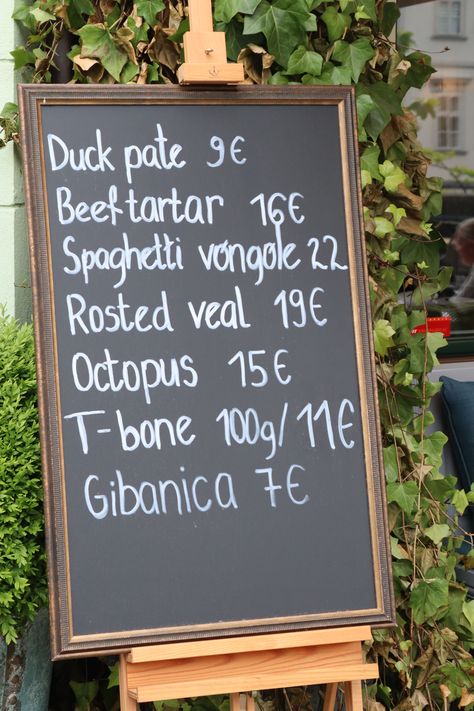 Duck pate 9€
Beef tartar 16€
Spaghetti vongole 22
Rosted veal 19€
Octopus 15€
T-bone 100g/11€
Gibanica 7€